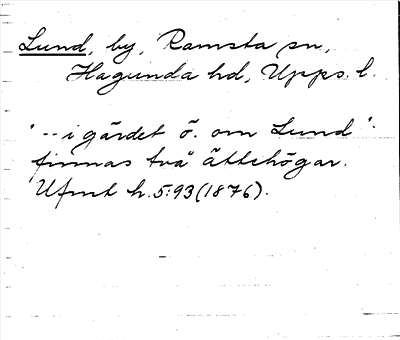 Lund, by, Ramsta sn,
Hagunda hd, Upps. l.
"--i gärdet ö. om Lund":
finnas två ättehögar.
Ufmt h. 5:93 (1876).